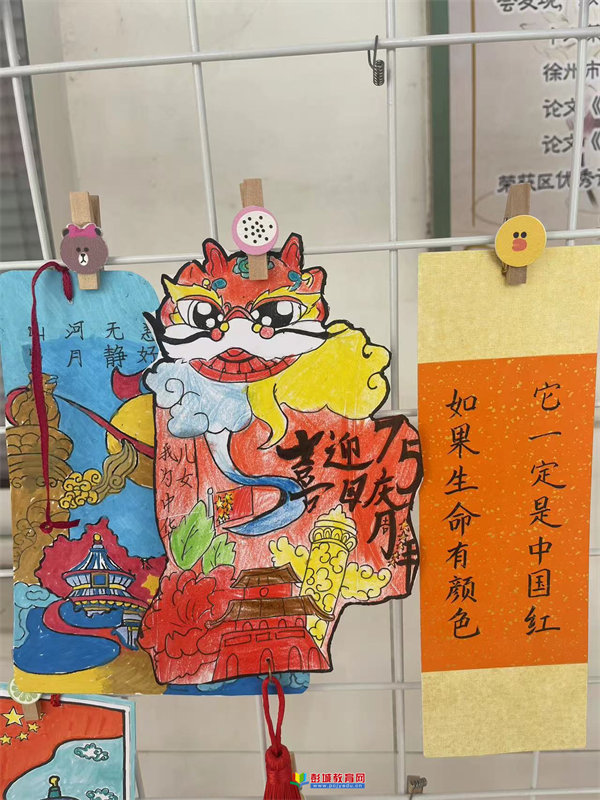 会发现,
徐州市
论文《
论文《
荣获区优秀
河无恙
月静好
我为中华
儿女
喜迎
75
周年
如果生命有颜色
它一定是中国红
彭城教育网
www.pcjyedu.cn